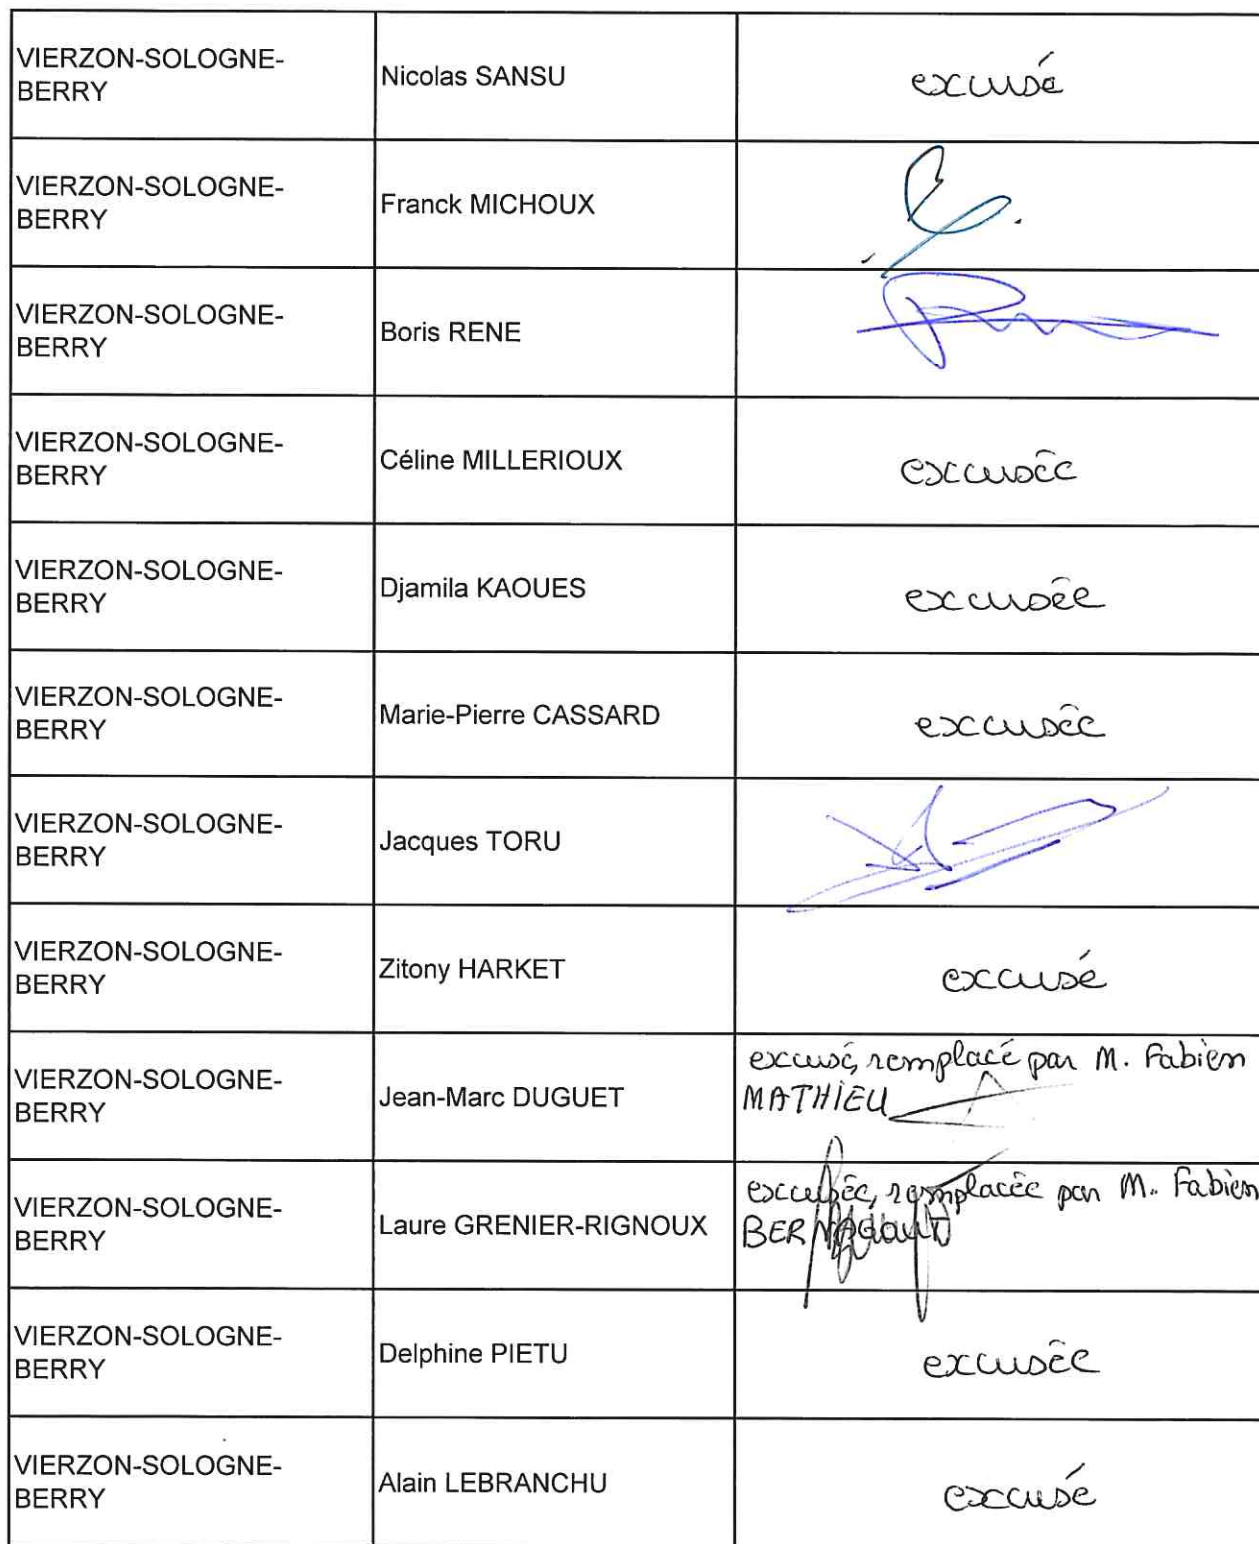 VIERZON-SOLOGNE-
BERRY
Nicolas SANSU
excusé
VIERZON-SOLOGNE-
BERRY
Franck MICHOUX
VIERZON-SOLOGNE-
BERRY
Boris RENE
VIERZON-SOLOGNE-
BERRY
Céline MILLERIOUX
excusée
VIERZON-SOLOGNE-
BERRY
Djamila KAOUES
excusée
VIERZON-SOLOGNE-
BERRY
Marie-Pierre CASSARD
excusée
VIERZON-SOLOGNE-
BERRY
Jacques TORU
VIERZON-SOLOGNE-
BERRY
Zitony HARKET
excusé
VIERZON-SOLOGNE-
BERRY
Jean-Marc DUGUET
excusé, remplacé par M. Fabien
MATHIEU
VIERZON-SOLOGNE-
BERRY
Laure GRENIER-RIGNOUX
excusée, remplacée par M. Fabien
VIERZON-SOLOGNE-
BERRY
Delphine PIETU
excusée
VIERZON-SOLOGNE-
BERRY
Alain LEBRANCHU
excusé